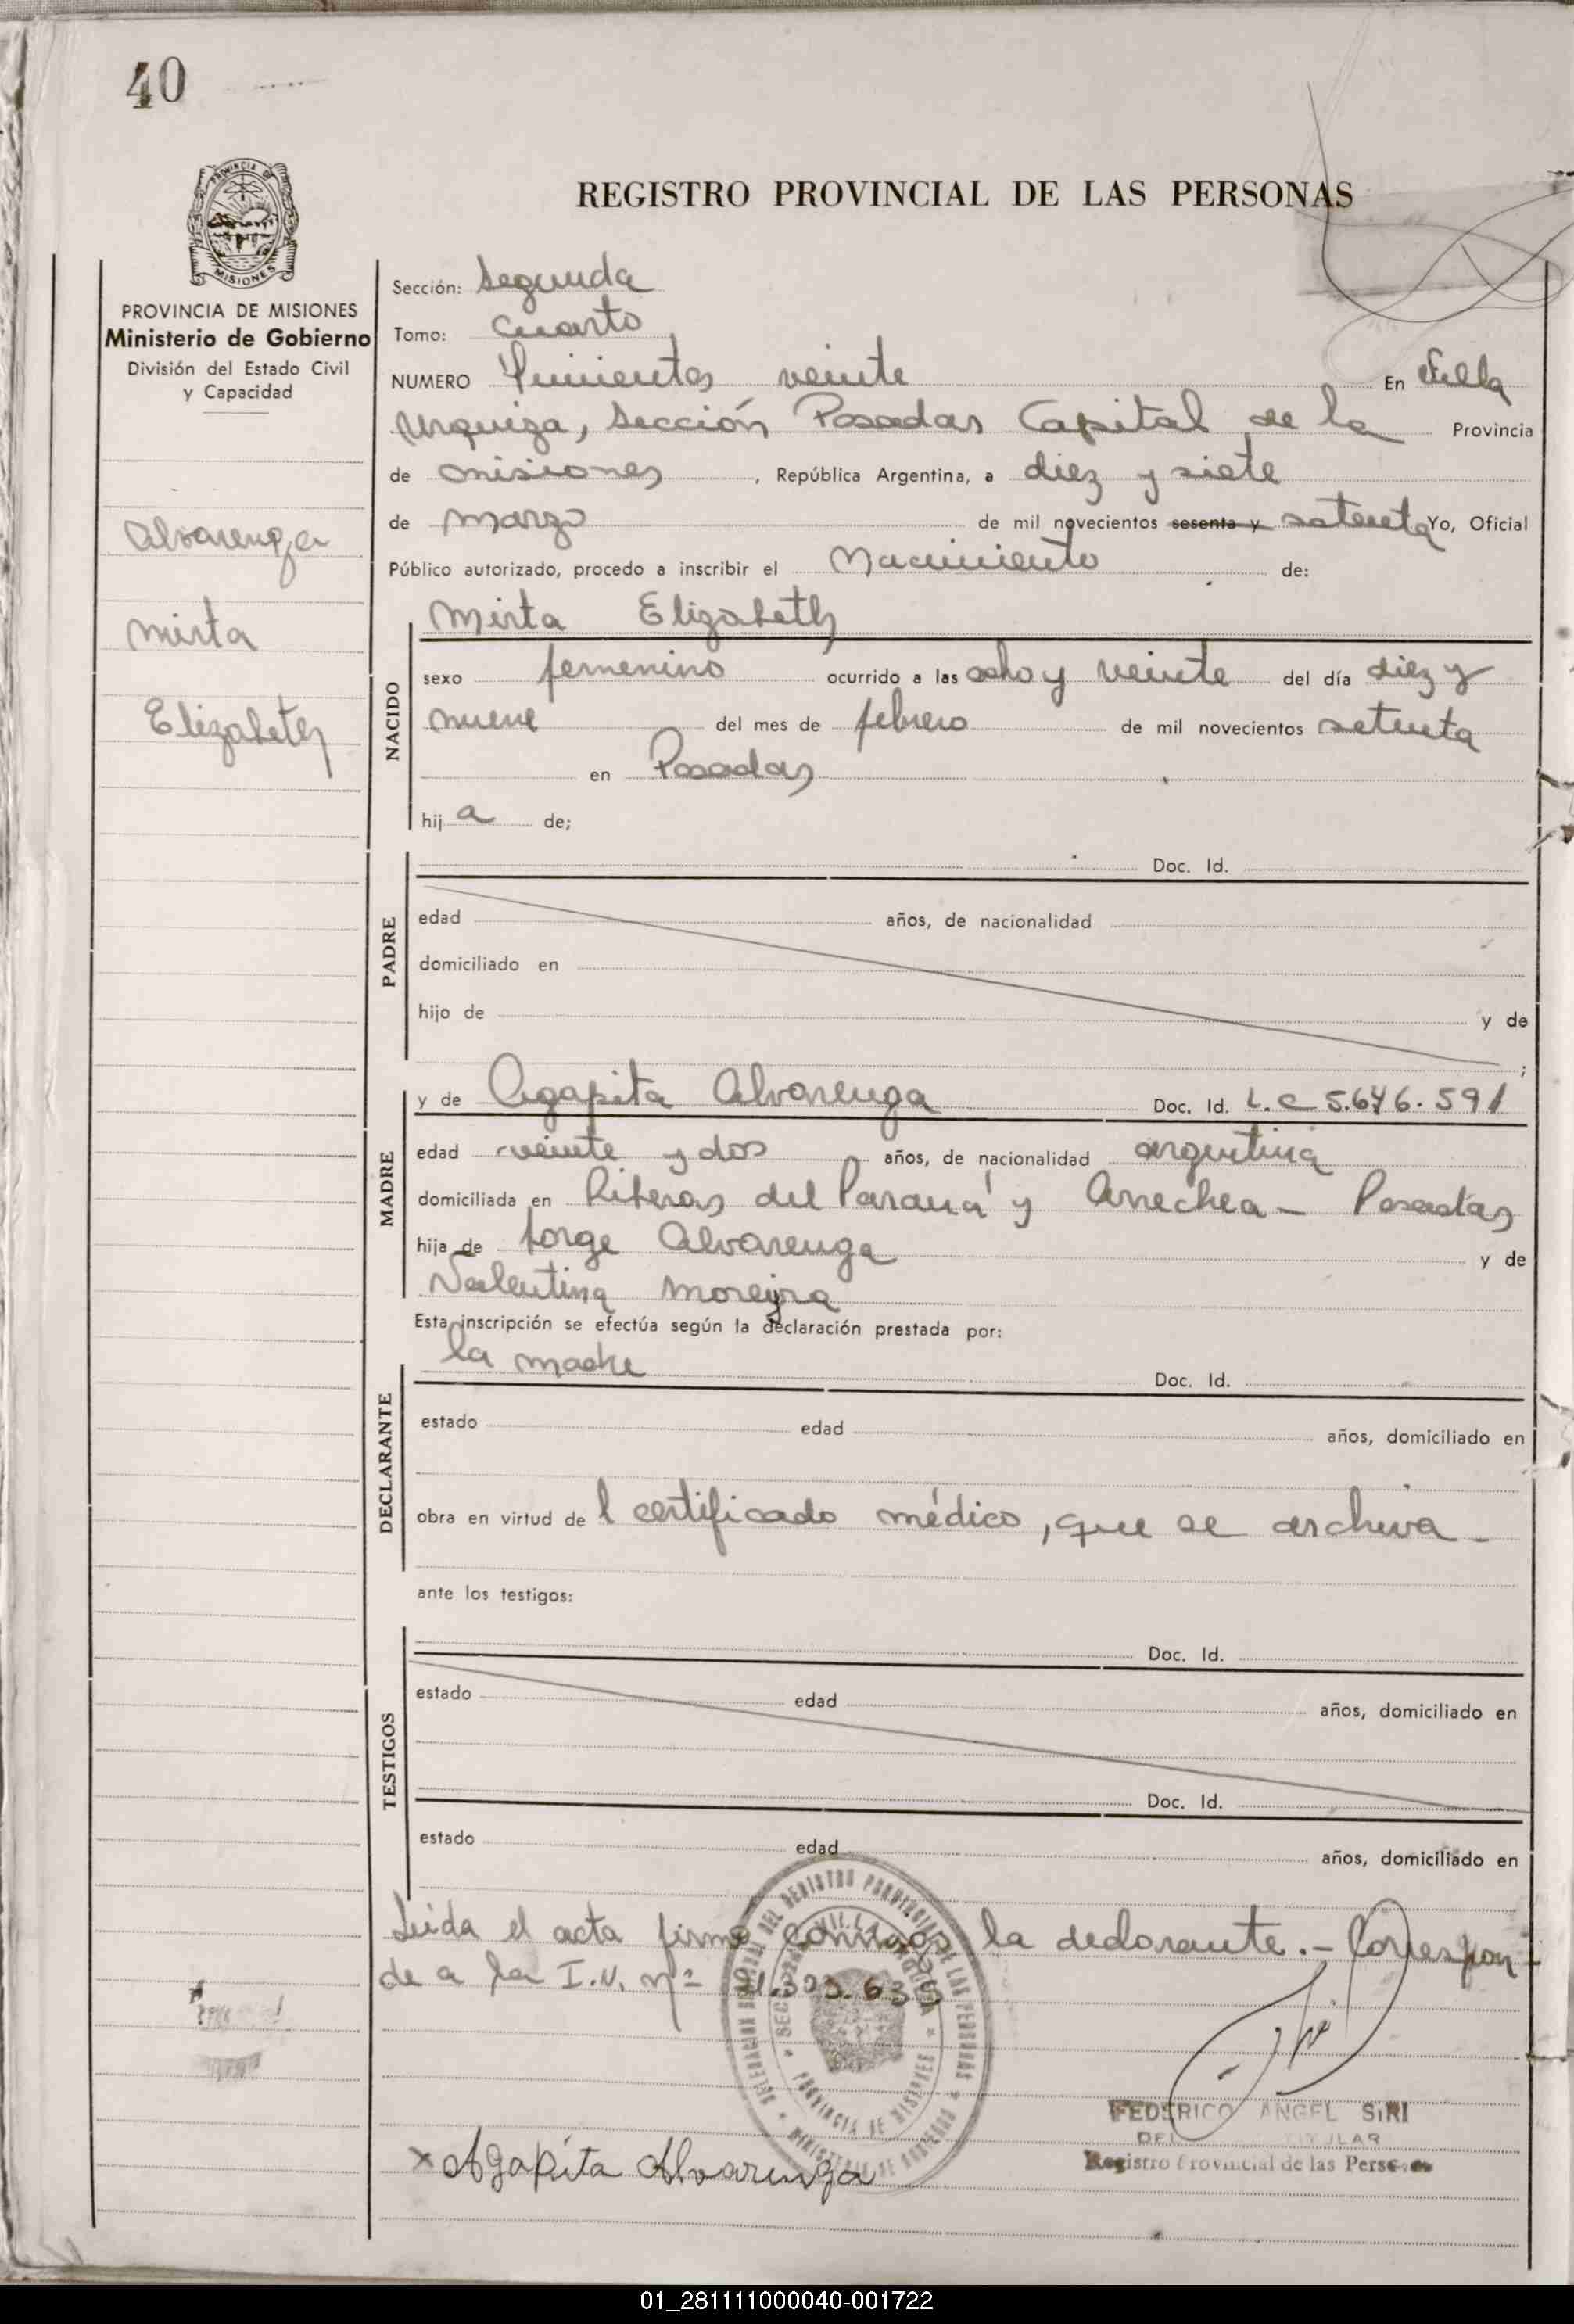 40
PROVINCIA DE
MISIONES
REGISTRO PROVINCIAL DE LAS PERSONAS
PROVINCIA DE MISIONES
Ministerio de Gobierno
División del Estado Civil
y Capacidad
Alvarenga
Mirta
Elizabeth
Sección: Segunda
Tomo: Cuarto
NUMERO Quinientos veinte En Villa
Urquiza, Sección Posadas Capital de la Provincia
de Misiones, República Argentina, a diez y siete
de Marzo de mil novecientos sesenta y setenta Yo, Oficial
Público autorizado, procedo a inscribir el Nacimiento de:
Mirta Elizabeth
NACIDO
sexo femenino ocurrido a las ocho y veinte del día diez y
nueve del mes de febrero de mil novecientos setenta
en Posadas
hij a de;
PADRE
Doc. Id.
edad años, de nacionalidad
domiciliado en
hijo de y de
;
MADRE
y de Agapita Alvarenga Doc. Id. L.C 5.646.591
edad veinte y dos años, de nacionalidad argentina
domiciliada en Riberas del Paraná y Arrechea - Posadas
hija de Jorge Alvarenga y de
Valentina Moreyra
Esta inscripción se efectúa según la declaración prestada por:
DECLARANTE
la madre Doc. Id.
estado edad años, domiciliado en
obra en virtud de l certificado médico, que se archiva -
ante los testigos:
TESTIGOS
Doc. Id.
estado edad años, domiciliado en
Doc. Id.
estado edad años, domiciliado en
Leida el acta firma conmigo la declarante.- Correspon-
de a la I.N. nº
DEL REGISTRO PROVINCIAL DE LAS PERSONAS
PROVINCIA DE MISIONES
MINISTERIO DE GOBIERNO
x Agapita Alvarenga
FEDERICO ANGEL SIRI
Registro Provincial de las Personas
01_281111000040-001722